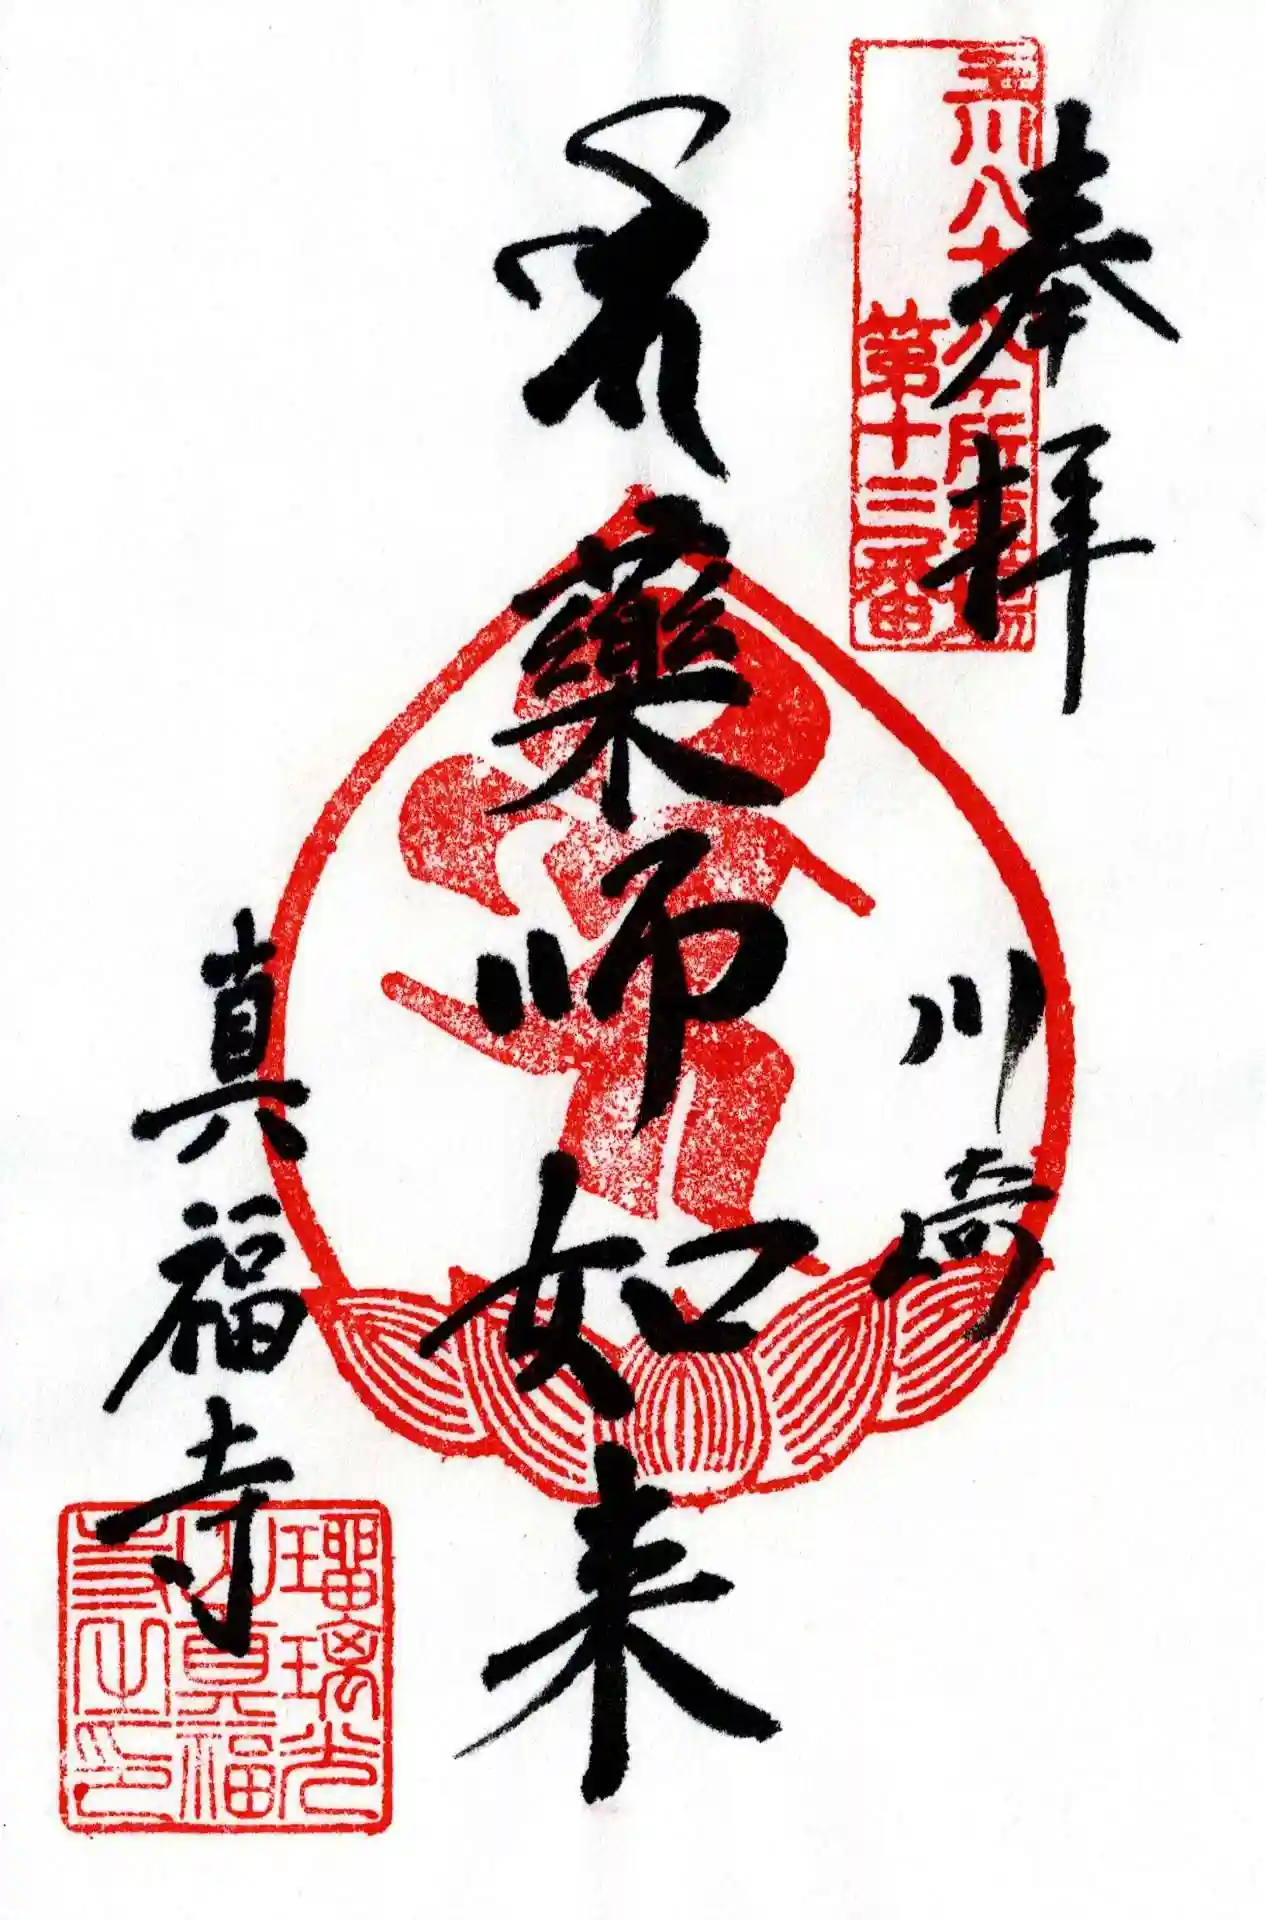 奉拝
玉川八十八ヶ所霊場
第十三番
川崎
薬師如来
真福寺
瑠璃光
山真福
寺之印